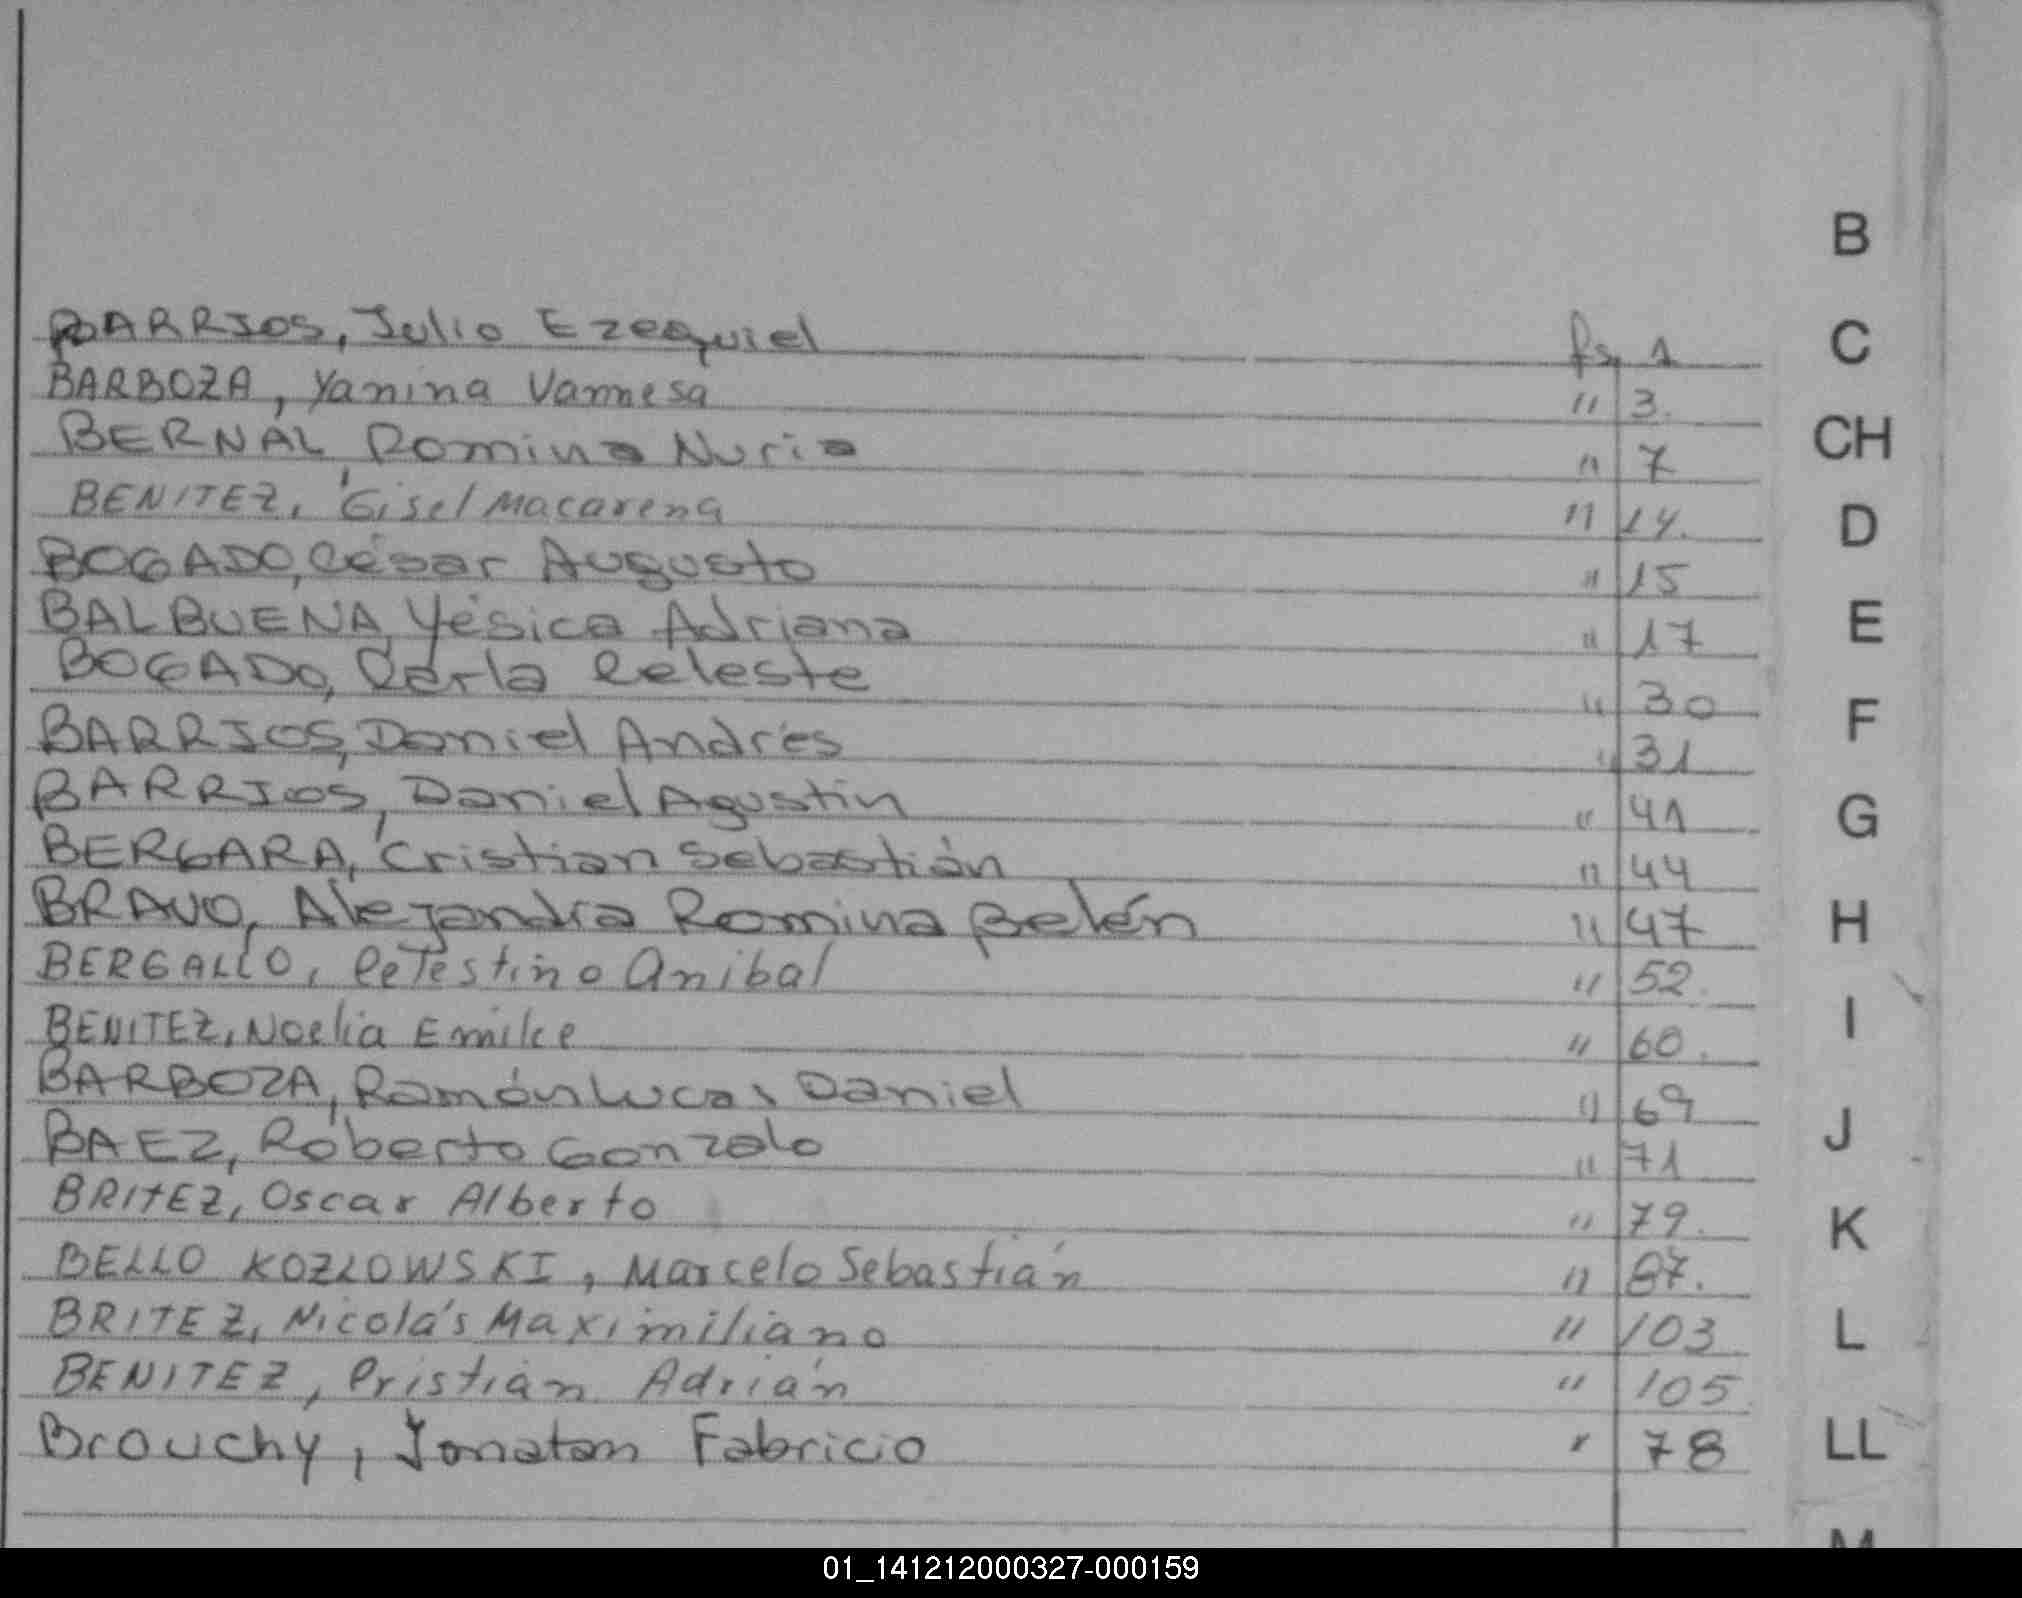 B
BARRIOS, Julio Ezequiel fs 1
C
BARBOZA, Yanina Vannesa " 3.
BERNAL, Romina Nuria " 7
CH
BENITEZ, Gisel Macarena " 14.
D
BOGADO, César Augusto " 15
BALBUENA, Yésica Adriana " 17
E
BOGADO, Carla Celeste " 30
F
BARRIOS, Daniel Andrés " 31
BARRIOS, Daniel Agustín " 41
G
BERGARA, Cristian Sebastián " 44
BRAVO, Alejandra Romina Belén " 47
H
BERGALLO, Celestino Anibal " 52.
I
BENITEZ, Noelia Emilce " 60.
BARBOZA, Ramón Lucas Daniel " 69
J
BAEZ, Roberto Gonzalo " 71
BRITEZ, Oscar Alberto " 79.
K
BELLO KOZLOWSKI, Marcelo Sebastián " 87.
BRITEZ, Nicolás Maximiliano " 103
L
BENITEZ, Cristián Adrián " 105
Brouchy, Jonatan Fabricio " 78
LL
M
01_141212000327-000159